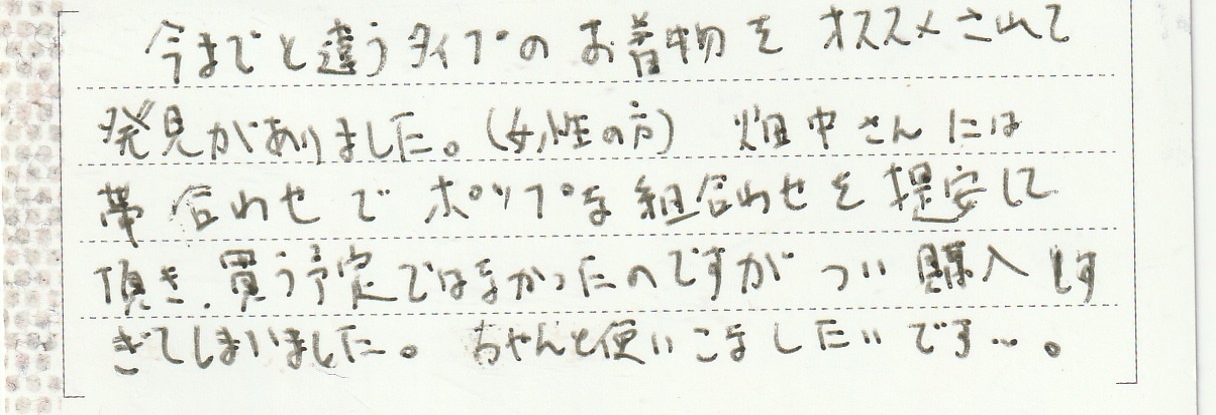 今までと違うタイプのお着物をオススメされて
発見がありました。(女性の方) 畑中さんには
帯合わせでポップな組合わせを提安して
頂き、買う予定ではなかったのですがつい購入しす
ぎてしまいました。ちゃんと使いこましたいです…。